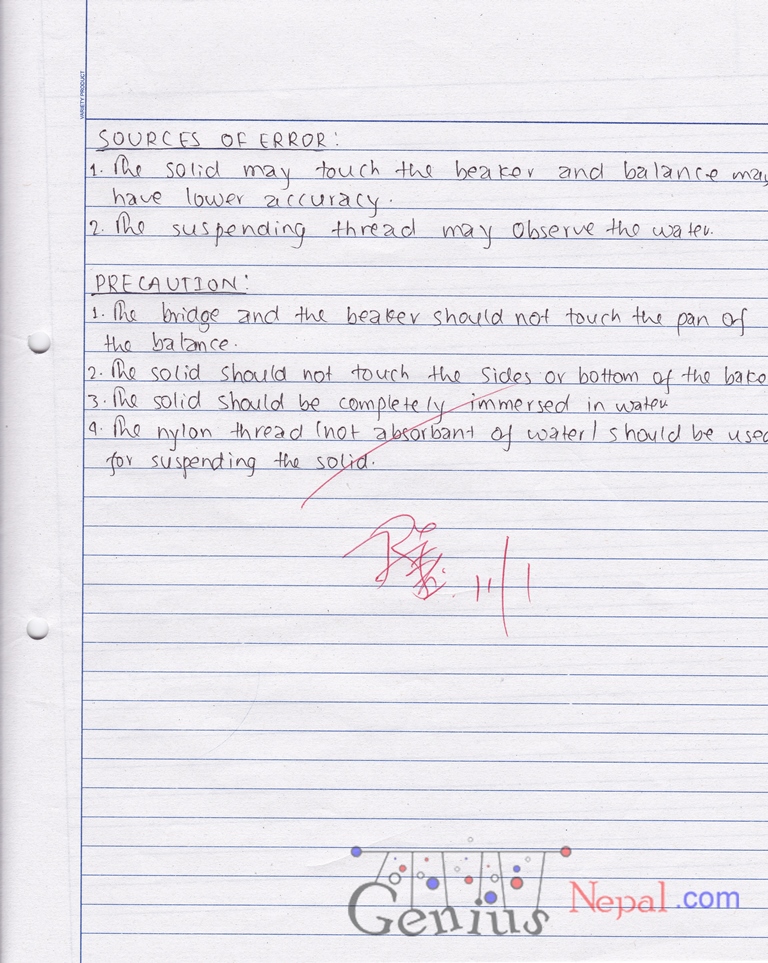 VARIETY PRODUCT
SOURCES OF ERROR:
1. The solid may touch the beaker and balance may
have lower accuracy.
2. The suspending thread may observe the water.
PRECAUTION:
1. The bridge and the beaker should not touch the pan of
the balance.
2. The solid should not touch the sides or bottom of the bake
3. The solid should be completely immersed in water
4. The nylon thread (not absorbant of water) should be used
for suspending the solid.
Genius Nepal.com